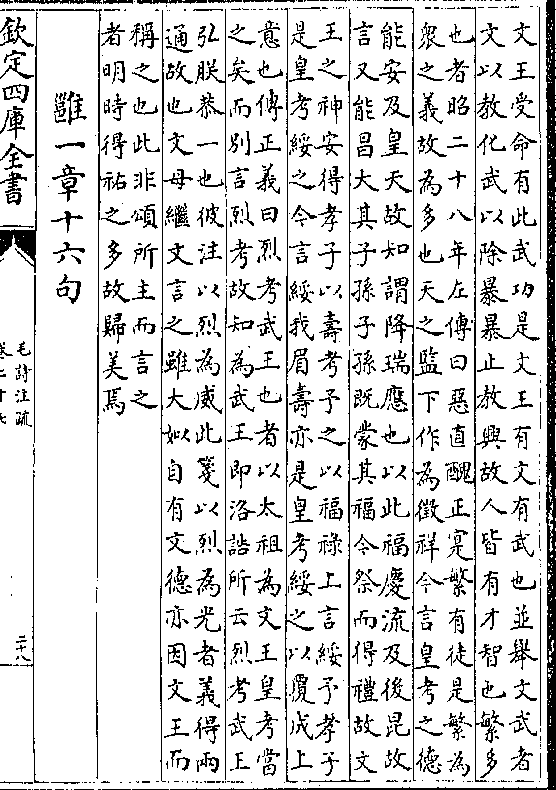 文王受命有此武功是文王有文有武也並舉文武者
文以教化武以除暴暴止教興故人皆有才智也繁多
也者昭二十八年左傳曰惡直醜正寔繁有徒是繁為
衆之義故為多也天之監下作為徵祥今言皇考之德
能安及皇天故知謂降瑞應也以此福慶流及後昆故
言又能昌大其子孫子孫既蒙其福今祭而得禮故文
王之神安得孝子以壽考予之以福祿上言綏予孝子
是皇考綏之今言綏我眉壽亦是皇考綏之以覆成上
意也傳正義曰烈考武王也者以太祖為文王皇考當
之矣而別言烈考故知為武王即洛誥所云烈考武王
弘朕恭一也彼注以烈為威此箋以烈為光者義得兩
通故也文母繼文言之雖大姒自有文德亦因文王而
稱之也此非頌所主而言之
者明時得祐之多故歸美焉
雝一章十六句
欽定四庫全書
毛詩注疏
卷二十七
二十八